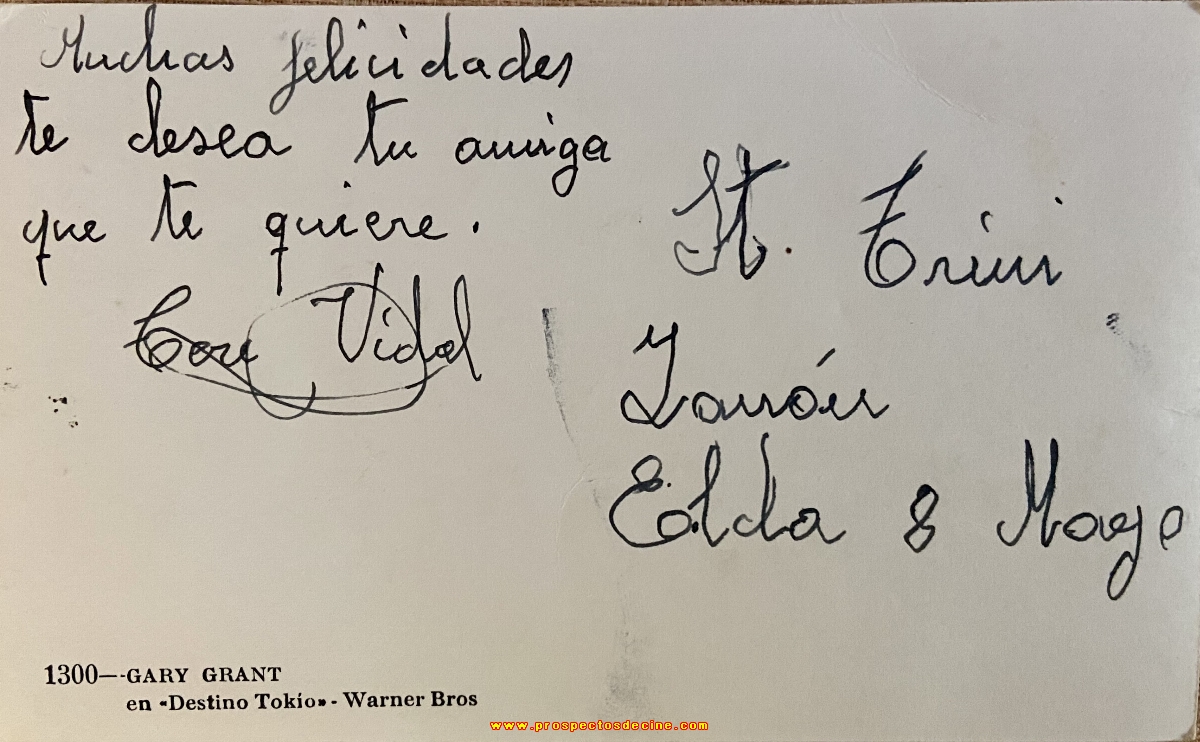 Muchas felicidades
te desea tu amiga
que te quiere.
Vidal
St. Trini
Elda 8 Mayo
1300—GARY GRANT
en «Destino Tokío» - Warner Bros
www.prospectosdecine.com